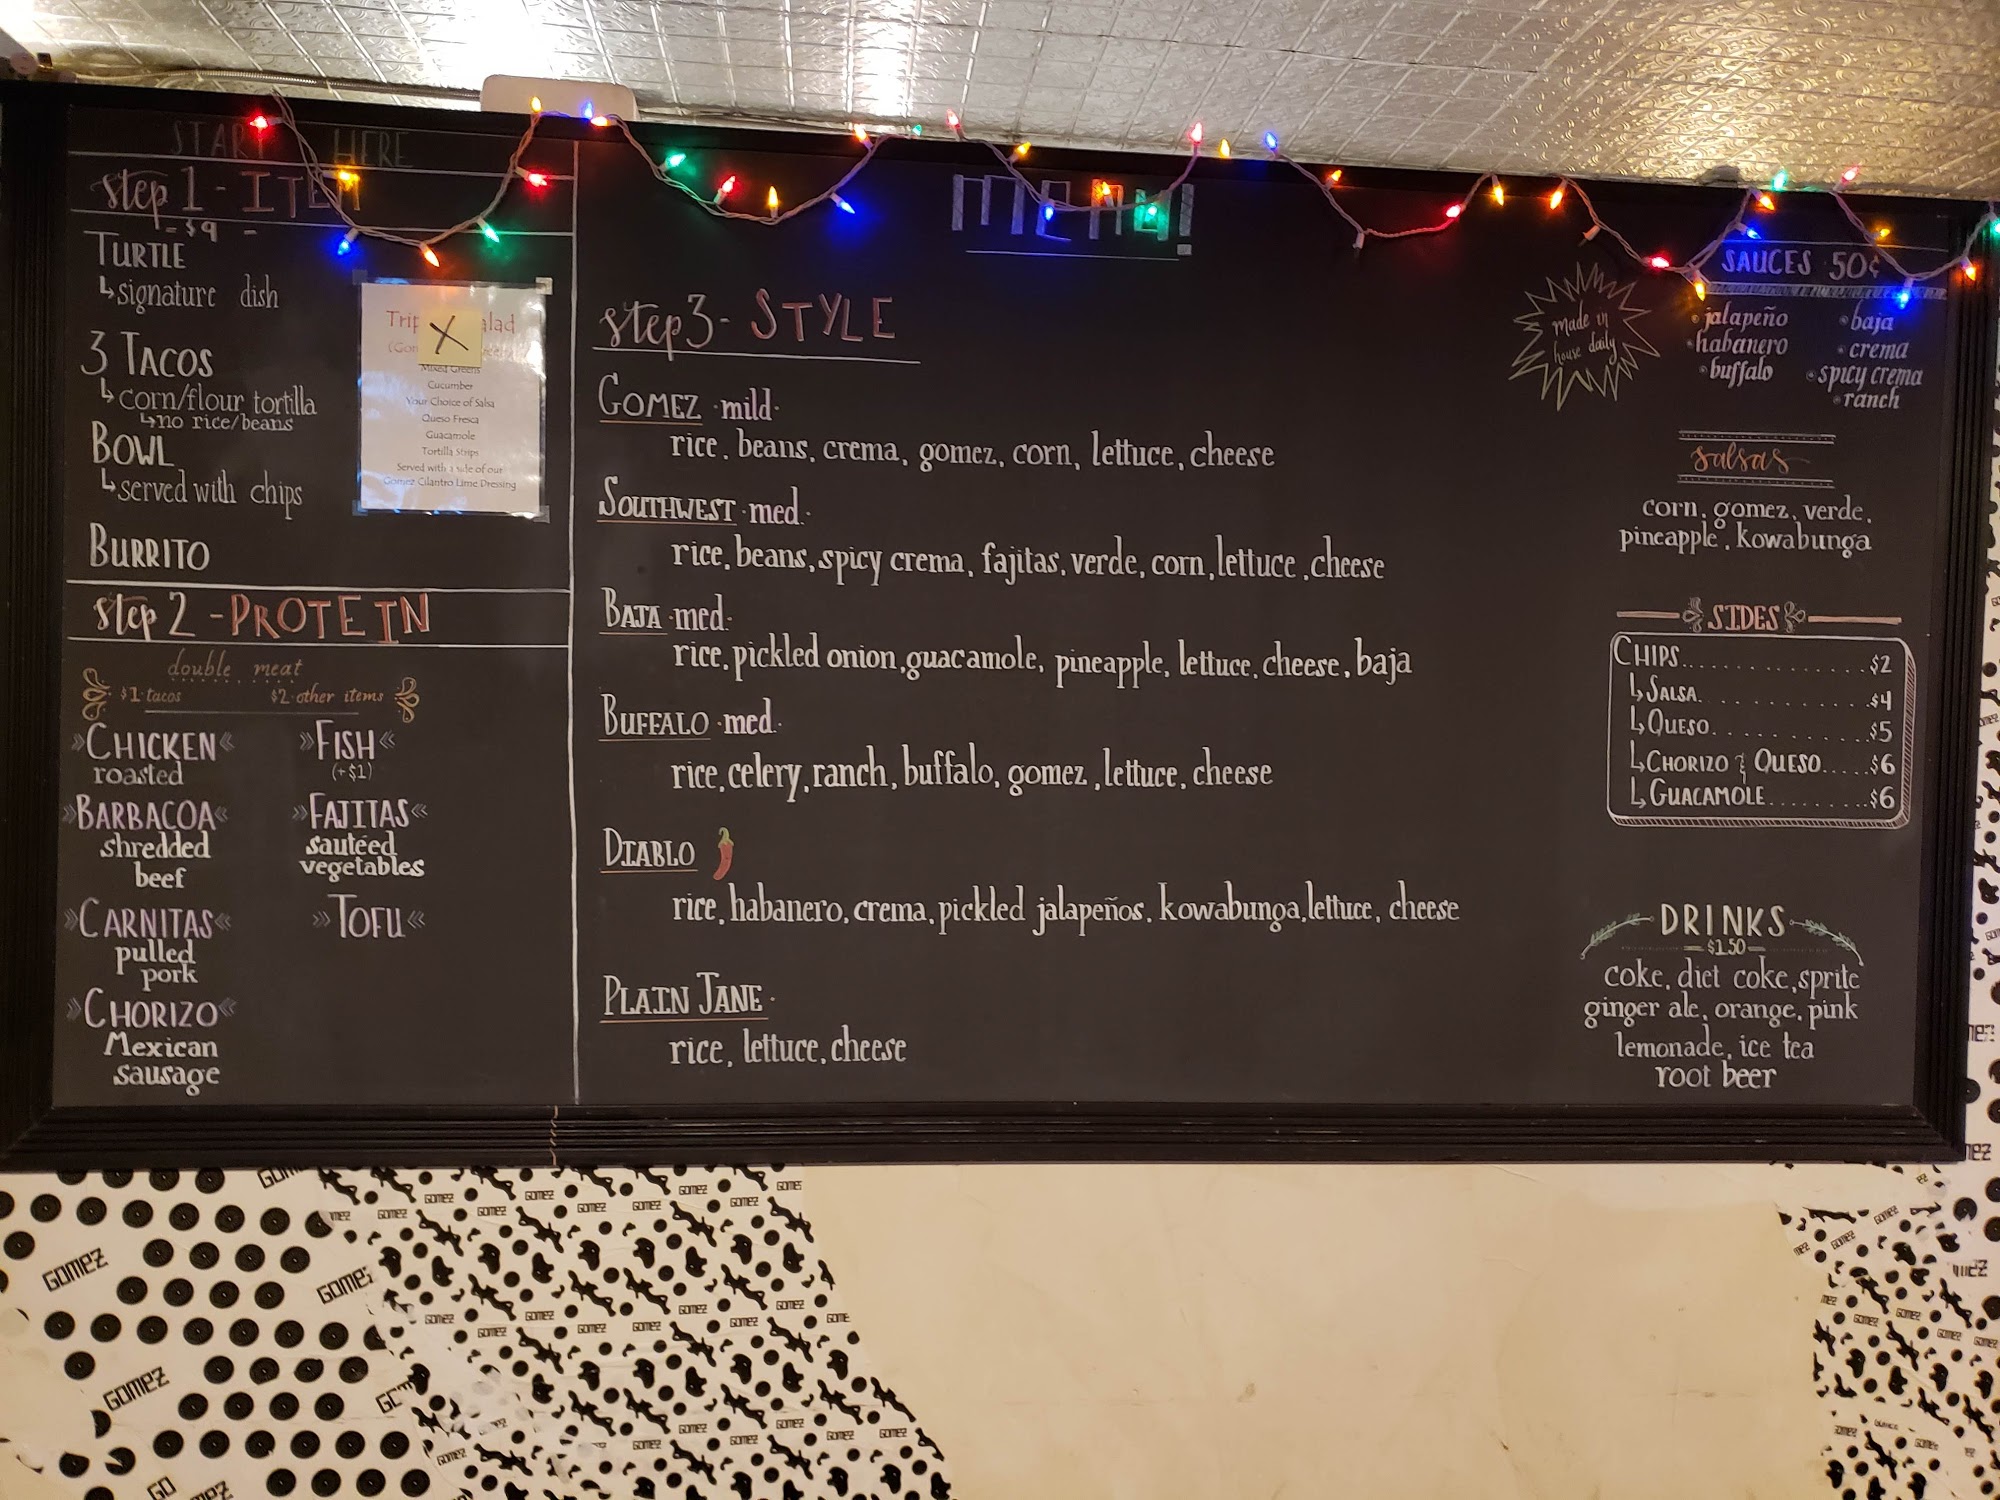 START HERE
step 1 - ITEM
- $9 -
TURTLE
signature dish
3 TACOS
corn/flour tortilla
no rice/beans
BOWL
served with chips
BURRITO
Mixed Greens
Cucumber
Your Choice of Salsa
Queso Fresca
Guacamole
Tortilla Strips
Served with a side of our
Gomez Cilantro Lime Dressing
step 2 - PROTEIN
double meat
$1 tacos $2 other items
CHICKEN
roasted
BARBACOA
shredded
beef
CARNITAS
pulled
pork
CHORIZO
Mexican
sausage
FISH
(+$1)
FAJITAS
sautéed
vegetables
TOFU
MENU!
step 3 - STYLE
GOMEZ · mild ·
rice, beans, crema, gomez, corn, lettuce, cheese
SOUTHWEST · med. ·
rice, beans, spicy crema, fajitas, verde, corn, lettuce, cheese
BAJA · med. ·
rice, pickled onion, guacamole, pineapple, lettuce, cheese, baja
BUFFALO · med. ·
rice, celery, ranch, buffalo, gomez, lettuce, cheese
DIABLO
rice, habanero, crema, pickled jalapeños, kowabunga, lettuce, cheese
PLAIN JANE ·
rice, lettuce, cheese
made in
house daily
SAUCES 50¢
• jalapeño
• habanero
• buffalo
• baja
• crema
• spicy crema
• ranch
salsas
corn, gomez, verde,
pineapple, kowabunga
SIDES
CHIPS.............$2
SALSA...........$4
QUESO..........$5
CHORIZO & QUESO.....$6
GUACAMOLE........$6
DRINKS
$1.50
coke, diet coke, sprite
ginger ale, orange, pink
lemonade, ice tea
root beer
GOMEZ
GOMEZ
GOMEZ